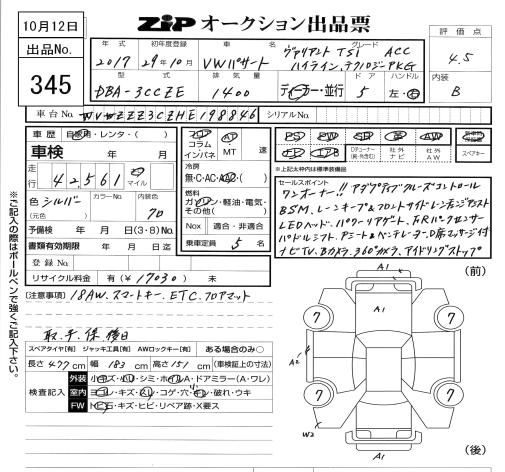 10月12日
ZiP オークション出品票
出品No.
345
評価点
4.5
内装
B
年式 初年度登録 車名 グレード
2017 29年10月 VWパサート ヴァリアント TSI ACC
ハイライン、テクノロジーPKG
型式 排気量 ドア ハンドル
DBA-3CCZE 1400 ディーラー・並行 5 左・右
車台No. WVWZZZ3CZHE198846 シリアルNo.
車歴 自家用・レンタ・( )
車検 年 月
走行 42,561 km マイル
色 シルバー カラーNo. 内装色
(元色) クロ
予備検 年 月 日(3・8)No.
書類有効期限 年 月 日迄
登録No.
リサイクル料金 有(¥17030) 未
フロア
コラム
インパネ
AT
MT
速
冷房
無・C・AC・AAC・( )
燃料
ガソリン・軽油・電気・
その他( )
Nox 適合・非適合
乗車定員 5 名
PS PW SR 革 AW
ナビ TV エアB
社外ナビ
社外AW
スペアキー
*上記太枠内は標準装備品
セールスポイント
ワンオーナー!! アダプティブクルーズコントロール
BSM、レーンキープ&フロントサイドレーンチェンジアシスト
LEDヘッド、パワーリアゲート、F&Rパークセンサー
パドルシフト、Aシート&ベンチレーター、D席マッサージ付
ナビTV、Bカメラ、360°カメラ、アイドリングストップ
[注意事項] 18AW、スマートキー、ETC、フロアマット
取、手、保、後日
スペアタイヤ[有] ジャッキ工具[有] AWロックキー[有] ある場合のみ○
長さ 477 cm 幅 183 cm 高さ 151 cm (車検証上の寸法)
検査記入
外装 小キズ・小凹・シミ・ホイル・ドアミラー(A・ワレ)
室内 ヨゴレ・キズ・スレ・コゲ・穴・ハゲ・破れ・ウキ
FW トビ石・キズ・ヒビ・リペア跡・X要ス
※ご記入の際はボールペンで強くご記入下さい。
(前)
A1
A1
7
7
A2
7
7
W2
A1
(後)